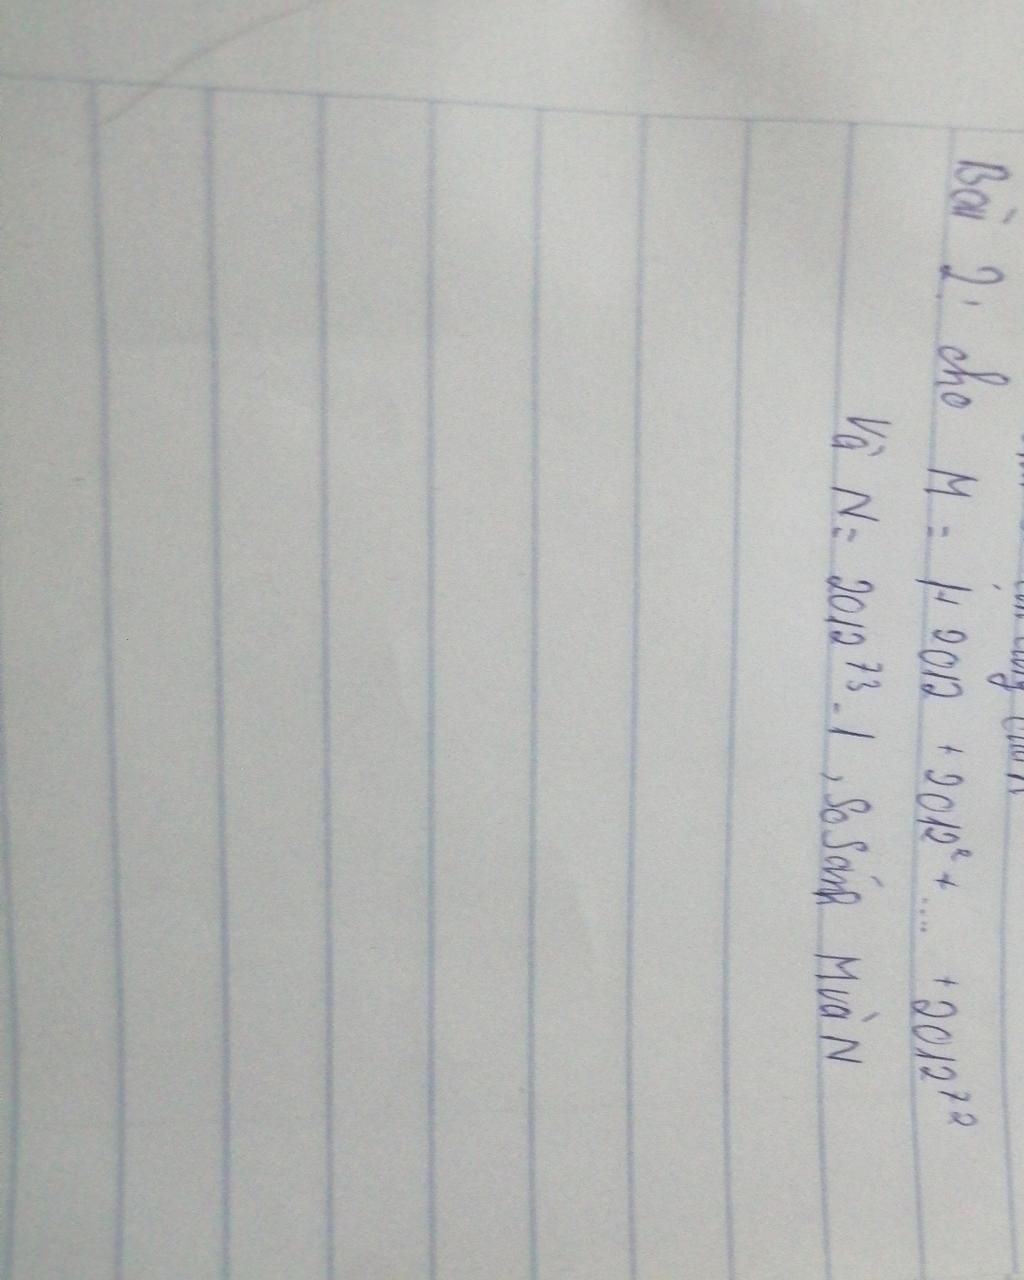 Bài 2: cho M = 1+ 2012 + 2012² + .... + 2012⁷²
Và N = 2012⁷³ - 1, So Sánh M và N